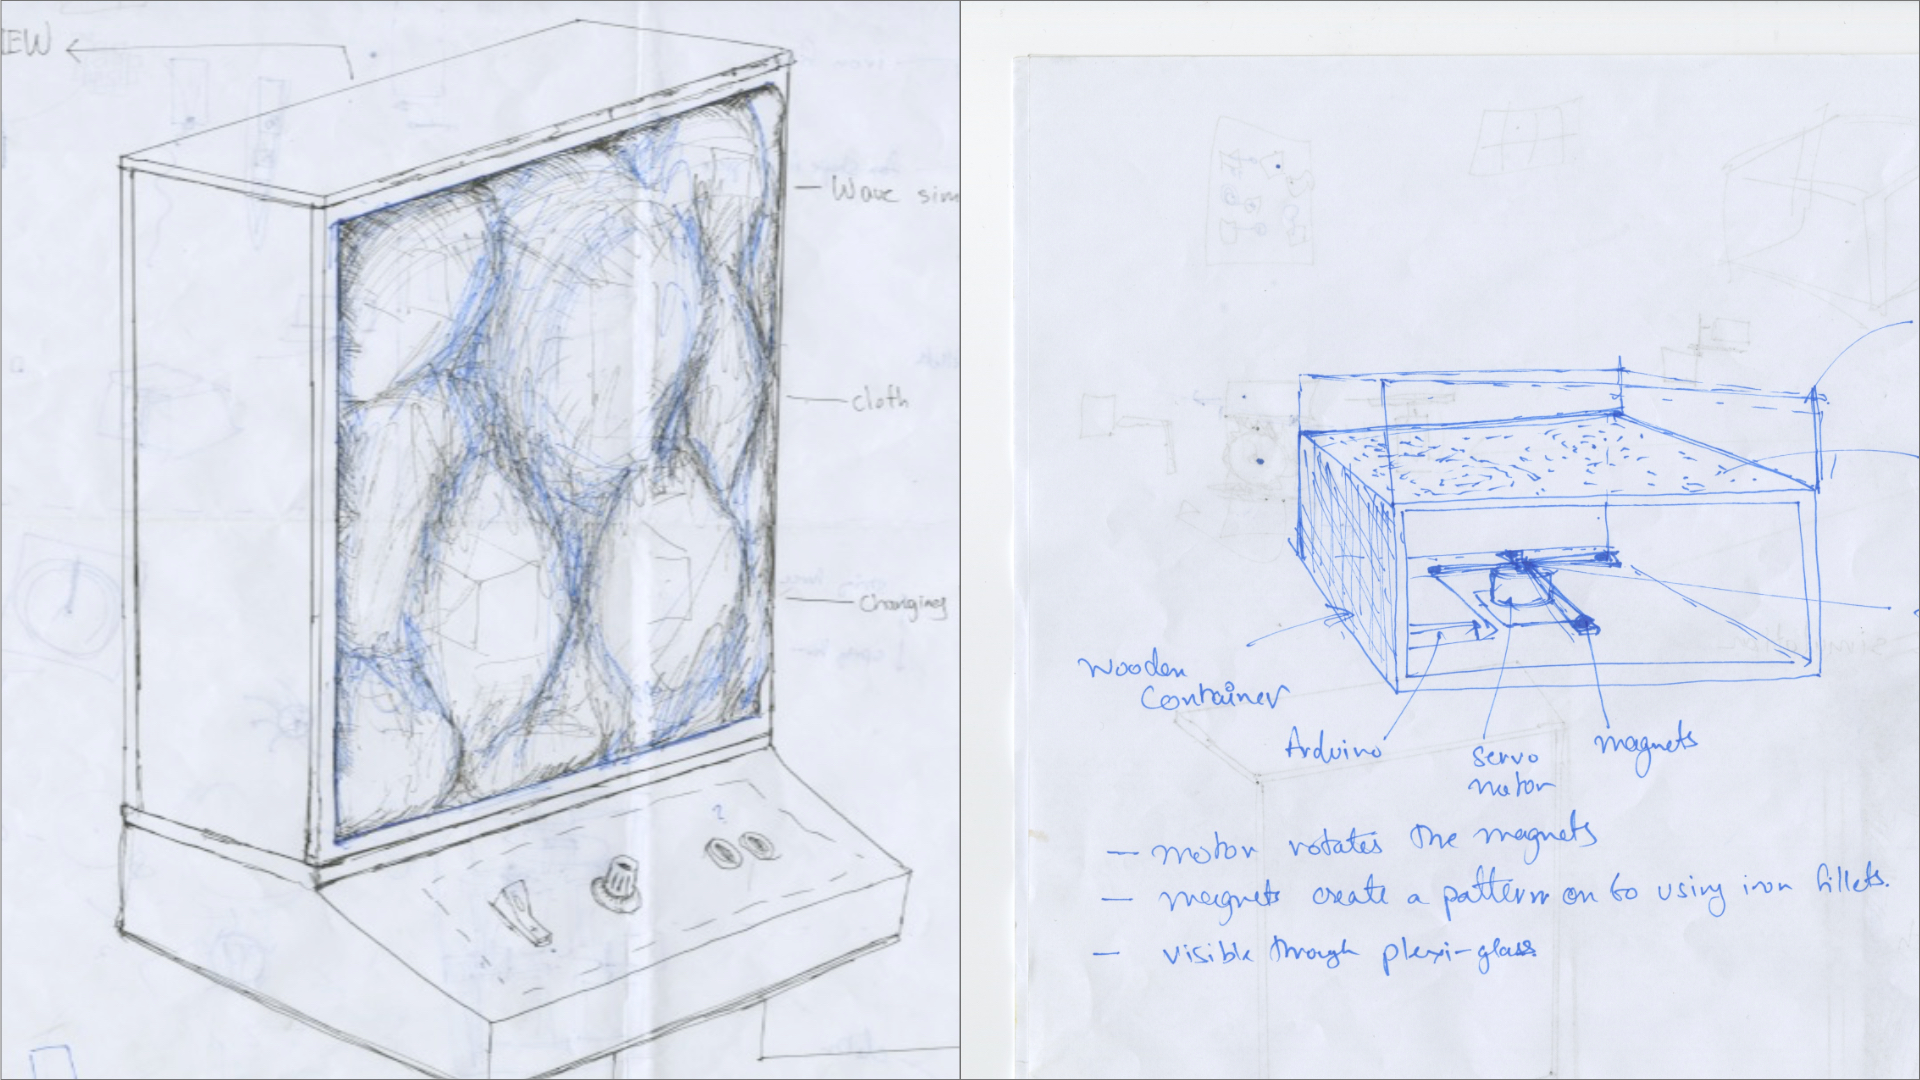 IEW
Wave sim
cloth
Changing
?
Wooden
Container
Arduino
servo
motor
magnets
— motor rotates the magnets
— magnets create a pattern on to using iron fillets.
— visible through plexi-glass